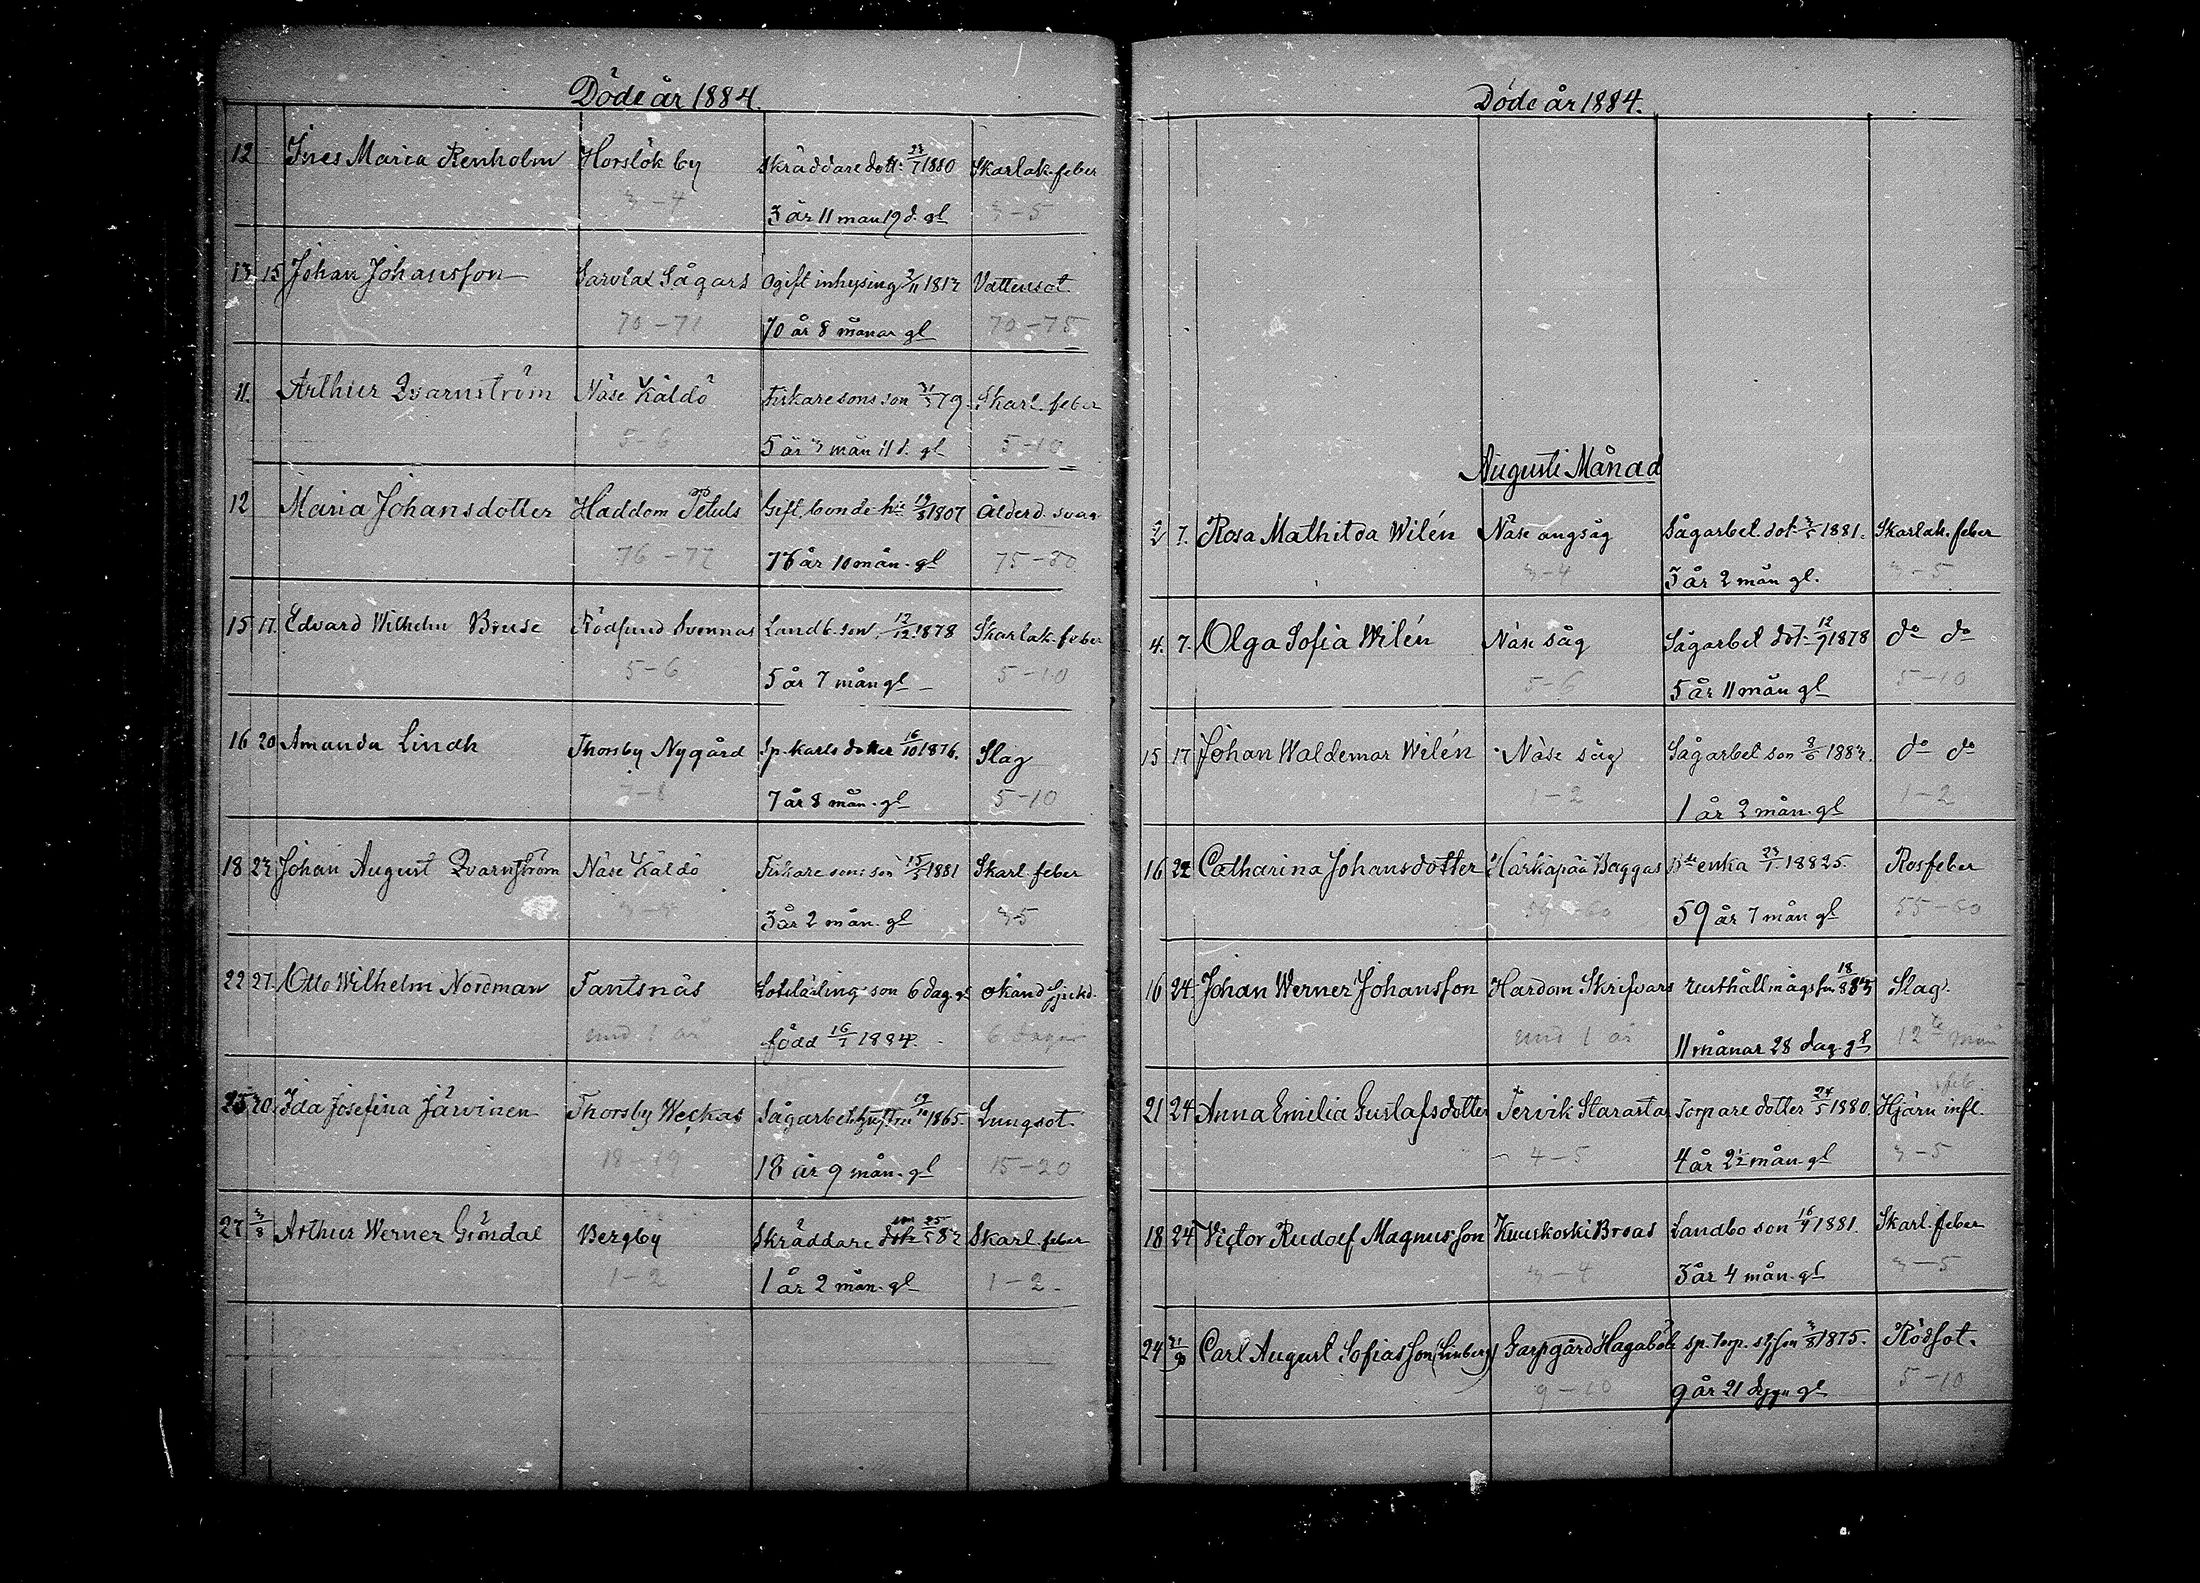 Döde år 1884.
12 Ines Maria Renholm Horslök by Skräddare dott. 23/7 1880 Skarlak. feber
3-4 3 år 11 mån 19 d. gl 3-5
13 15 Johan Johansson Sarvlax Sågars Ogift inhysing 2/11 1813 Vattusot
70-71 70 år 8 månar gl 70-75
11. Arthur Qvarnström Näse Käldö Fiskare sons son 31/3 79. Skarl. feber
5-6 5 år 3 mån 11 d. gl 5-10
12 Maria Johansdotter Haddom Petuls Gift bonde h:u 19/8 1807 Ålderd. svag
76-77 76 år 10 mån. gl 75-80
15 17. Edvard Wilhelm Bruse Rödsund Svennas Landb. son 12/12 1878 Skarlak. feber
5-6 5 år 7 mån gl 5-10
16 20 Amanda Lindh Thorsby Nygård Sp. karls dotter 16/10 1876. Slag
7-8 7 år 8 mån. gl 5-10
18 23 Johan August Qvarnström Näse Käldö Fiskare sons son 15/5 1881 Skarl. feber
3 år 2 mån. gl 3-5
22 27. Otto Wilhelm Nordman Tantsnäs son 6 dag. gl okänd sjukd.
und 1 år född 16/7 1884. 6 dagar
25 Ida Josefina Järvinen Thorsby Weckas Sågarbet. hustru 19/10 1865. Lungsot.
18-19 18 år 9 mån. gl 15-20
27 3/8 Arthur Werner Gröndal Bergby Skräddare son 25/5 83 Skarl. feber
1-2 1 år 2 mån. gl 1-2.
Döde år 1884.
Augusti Månad
2 7. Rosa Mathilda Wilén Näse ångsåg Sågarbet. dot. 3/5 1881. Skarlak. feber
3-4 3 år 2 mån gl. 3-5
4. 7. Olga Sofia Wilén Näse såg Sågarbet dot. 12/9 1878 do do
5-6 5 år 11 mån gl 5-10
15 17 Johan Waldemar Wilén Näse såg Sågarbet son 8/6 1883. do do
1-2 1 år 2 mån. gl 1-2
16 22 Catharina Johansdotter Härkäpää Baggas enka 23/1 18825. Rosfeber
59-60 59 år 7 mån gl 55-60
16 24. Johan Werner Johansson Hardom Skrifvars rusthåll mågs son 18/8 83 Slag.
und 1 år 11 månar 28 dag. gl 12te mån
21 24 Anna Emilia Gustafsdotter Tervik Starastas Torpare dotter 24/5 1880. Hjärn infl.
4-5 4 år 2½ mån. gl 3-5
18 24 Victor Rudolf Magnusson Kuuskoski Broas Landbo son 16/4 1881. Skarl. feber
3-4 3 år 4 mån. gl 3-5
24 31/8 Carl August Sofiasson (Linberg) Garpgård Hagaböle sp. torp. stjson 3/8 1875. Rödsot.
9-10 9 år 21 dygn gl 5-10